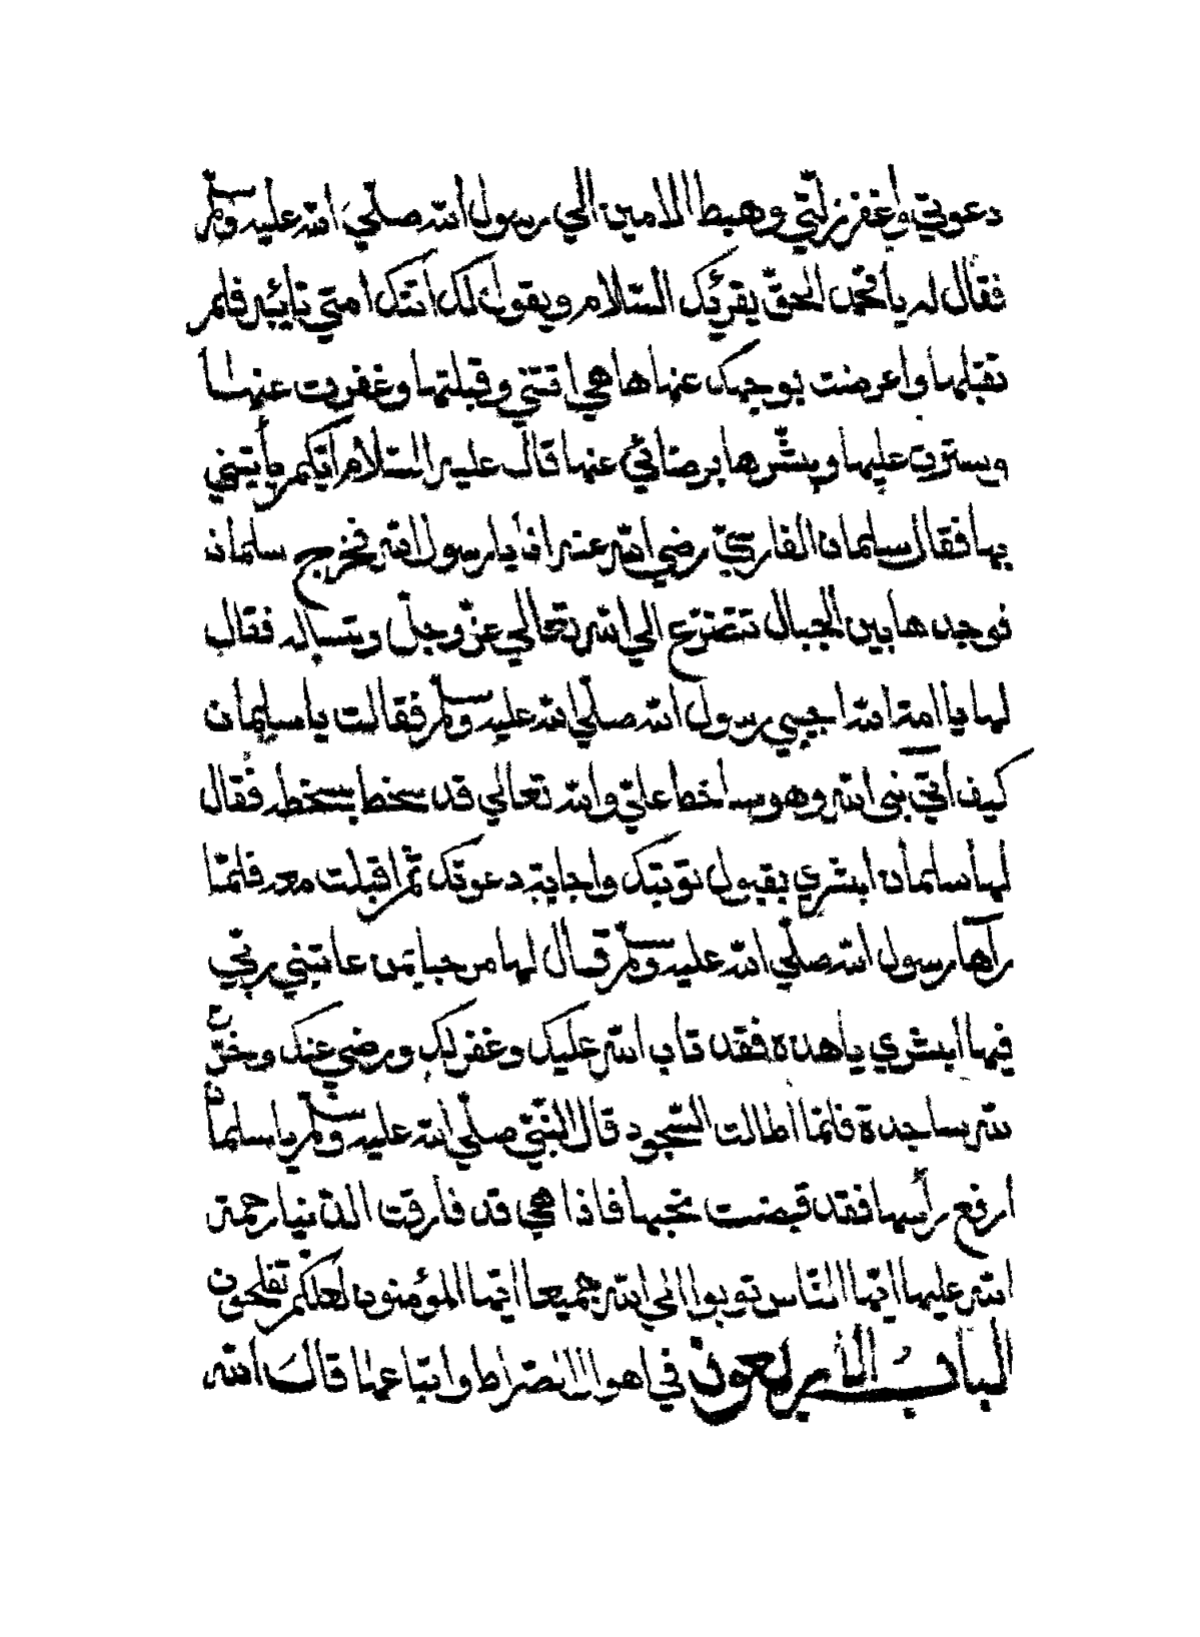 دعوتي واغفر زلتي وهبط الامين الي رسول الله صلّي الله عليه وسلّم
فقال له يا محمد الحقّ يقرئك السّلام ويقول لك أتتك امتي تايبة فلم
تقبلها واعرضت بوجهك عنها ها هي اتتني وقبلتها وغفرت عنها
ويسترت عليها وبشّرها برضائي عنها قال عليه السّلام ايّكم يأتيني
بها فقال سلمان الفارسيّ رضي الله عنه انا يا رسول الله فخرج سلمان
فوجدها بين الجبال تتضرّع الي الله تعالي عزّ وجلّ وتسأله فقال
لها يا امة الله اجيبي رسول الله صلّي الله عليه وسلّم فقالت يا سليمان
كيف آتي نبي الله وهو ساخط عليّ والله تعالي قد سخط بسخطه فقال
لها سلمان ابشري بقبول توبتك واجابة دعوتك ثمّ اقبلت معه فلمّا
رآها رسول الله صلّي الله عليه وسلّم قال لها من حيا من عاتبني ربّي
فيها ابشري يا هذه فقد تاب الله عليك وغفر لك ورضي عنك وخرّت
لله ساجدة فلمّا اطالت السّجود قال النّبيّ صلّي الله عليه وسلّم يا سلمان
ارفع رأسها فقد قبضت نحبها فاذا هي قد فارقت الدّنيا رحمة
الله عليها ايّها النّاس توبوا الي الله جميعا ايّها المؤمنون لعلّكم تفلحون
الباب الأربعون في اهوال الصّراط واتباعها قال الله